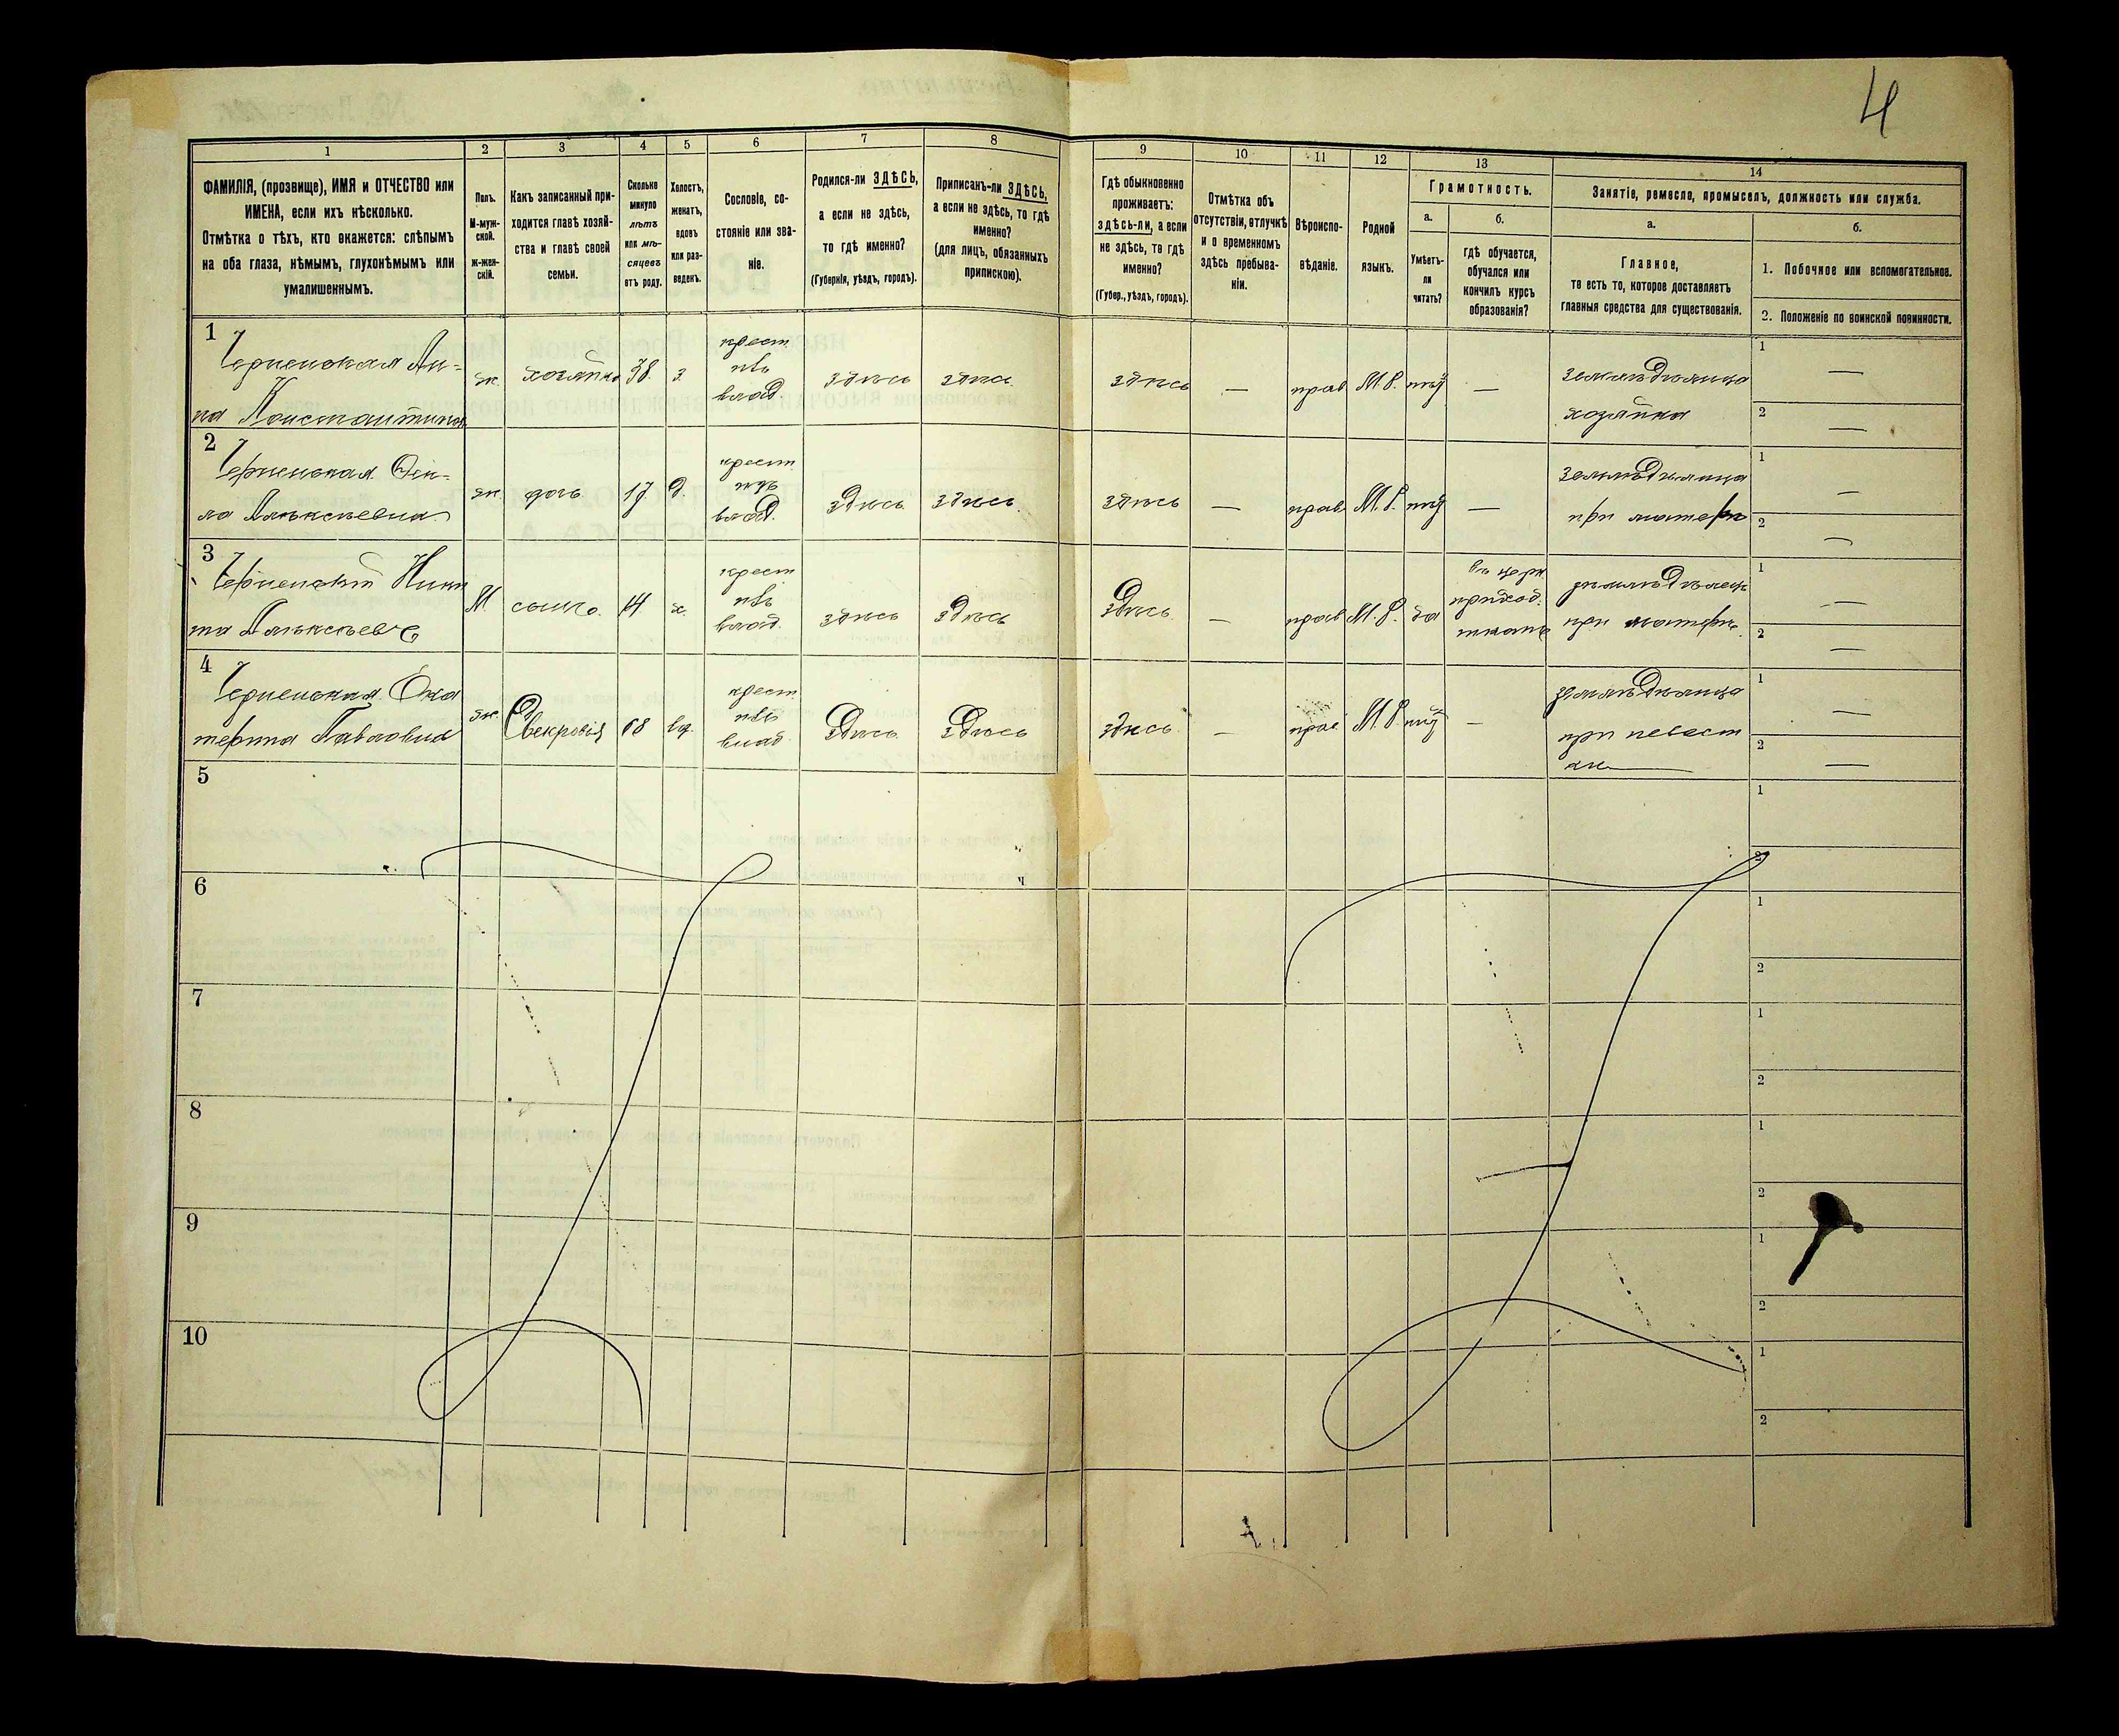 4
1
2
3
4
5
6
7
8
9
10
11
12
13
14
ФАМИЛІЯ, (прозвище), ИМЯ и ОТЧЕСТВО или
ИМЕНА, если ихъ нѣсколько.
Отмѣтка о тѣхъ, кто окажется: слѣпымъ
на оба глаза, нѣмымъ, глухонѣмымъ или
умалишеннымъ.
Полъ.
М-муж-
ской.
ж-жен-
скій.
Какъ записанный при-
ходится главѣ хозяй-
ства и главѣ своей
семьи.
Сколько
минуло
лѣтъ
или мѣ-
сяцевъ
отъ роду.
Холостъ,
женатъ,
вдовъ
или раз-
веденъ.
Сословіе, со-
стояніе или зва-
ніе.
Родился-ли ЗДѢСЬ,
а если не здѣсь,
то гдѣ именно?
(Губернія, уѣздъ, городъ).
Приписанъ-ли ЗДѢСЬ,
а если не здѣсь, то гдѣ
именно?
(для лицъ, обязанныхъ
припискою).
Гдѣ обыкновенно
проживаетъ:
здѣсь-ли, а если
не здѣсь, то гдѣ
именно?
(Губер., уѣздъ, городъ).
Отмѣтка объ
отсутствіи, отлучкѣ
и о временномъ
здѣсь пребыва-
ніи.
Вѣроиспо-
вѣданіе.
Родной
языкъ.
Грамотность.
а.
Умѣетъ-
ли
читать?
б.
гдѣ обучается,
обучался или
кончилъ курсъ
образованія?
Занятіе, ремесло, промыселъ, должность или служба.
а.
Главное,
то есть то, которое доставляетъ
главныя средства для существованія.
б.
1. Побочное или вспомогательное.
2. Положеніе по воинской повинности.
1
Черненская Ан-
на Константинов
ж. хозяйка 38. з.
крест.
изъ
влад.
здѣсь здѣсь здѣсь — прав М.Р. нѣт —
земледѣлица
хозяйка
1 —
2 —
2
Черненская
Алексѣевна
ж. дочь 17. д.
крест.
изъ
влад.
здѣсь здѣсь здѣсь — прав М.Р. нѣт —
земледѣлица
при матери
1 —
2 —
3
Черненскій Ники
та Алексѣев
М. сынъ. 14 х.
крест
изъ
влад.
здѣсь здѣсь здѣсь — прав М.Р. да
въ церк.
приход.
школѣ
земледѣлецъ
при матери.
1 —
2 —
4
Черненская Ека
терина Павловна
ж. Свекровь 68 вд.
крест
изъ
влад.
здѣсь здѣсь здѣсь — прав М.Р. нѣт —
земледѣлица
при невест
кѣ
1 —
2 —
5
1
2
6
1
2
7
1
2
8
1
2
9
1
2
10
1
2